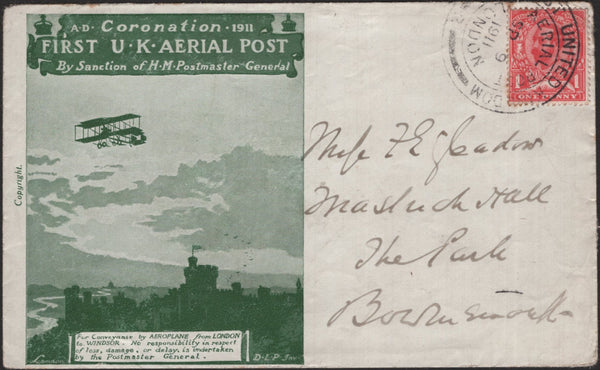 A·D· Coronation · 1911
FIRST U·K·AERIAL POST
By Sanction of H·M·Postmaster General
Copyright.
For Conveyance by AEROPLANE from LONDON
to WINDSOR. No responsibility in respect
of loss, damage, or delay, is undertaken
by the Postmaster General.
London
D·L·P· Inv
UNITED
AERIAL
1911
LONDON
ONE PENNY
1
1
Miss F E
Hall
The Park
Bournemouth